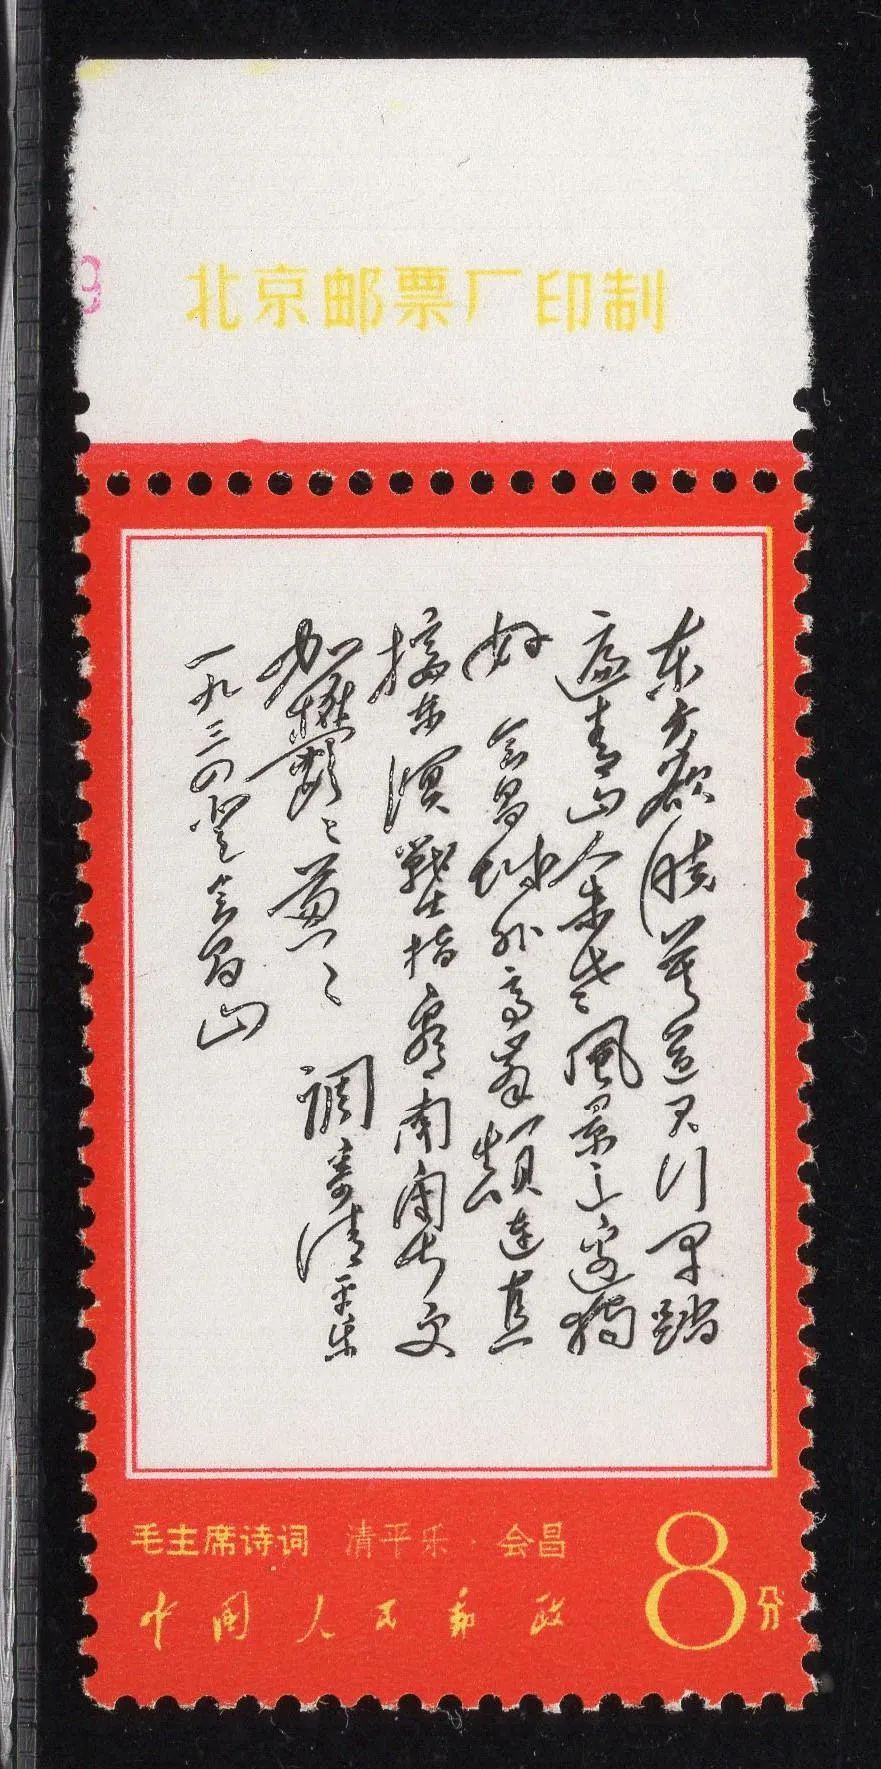 9
北京邮票厂印制
东方欲晓莫道君行早踏
遍青山人未老風景这邊獨
好 会昌城外高峯顛连直
接东溟戰士指看南粤更
加鬱々葱々 调寄清平乐
一九三四登会昌山
毛主席诗词 清平乐 会昌
中国人民邮政
8分